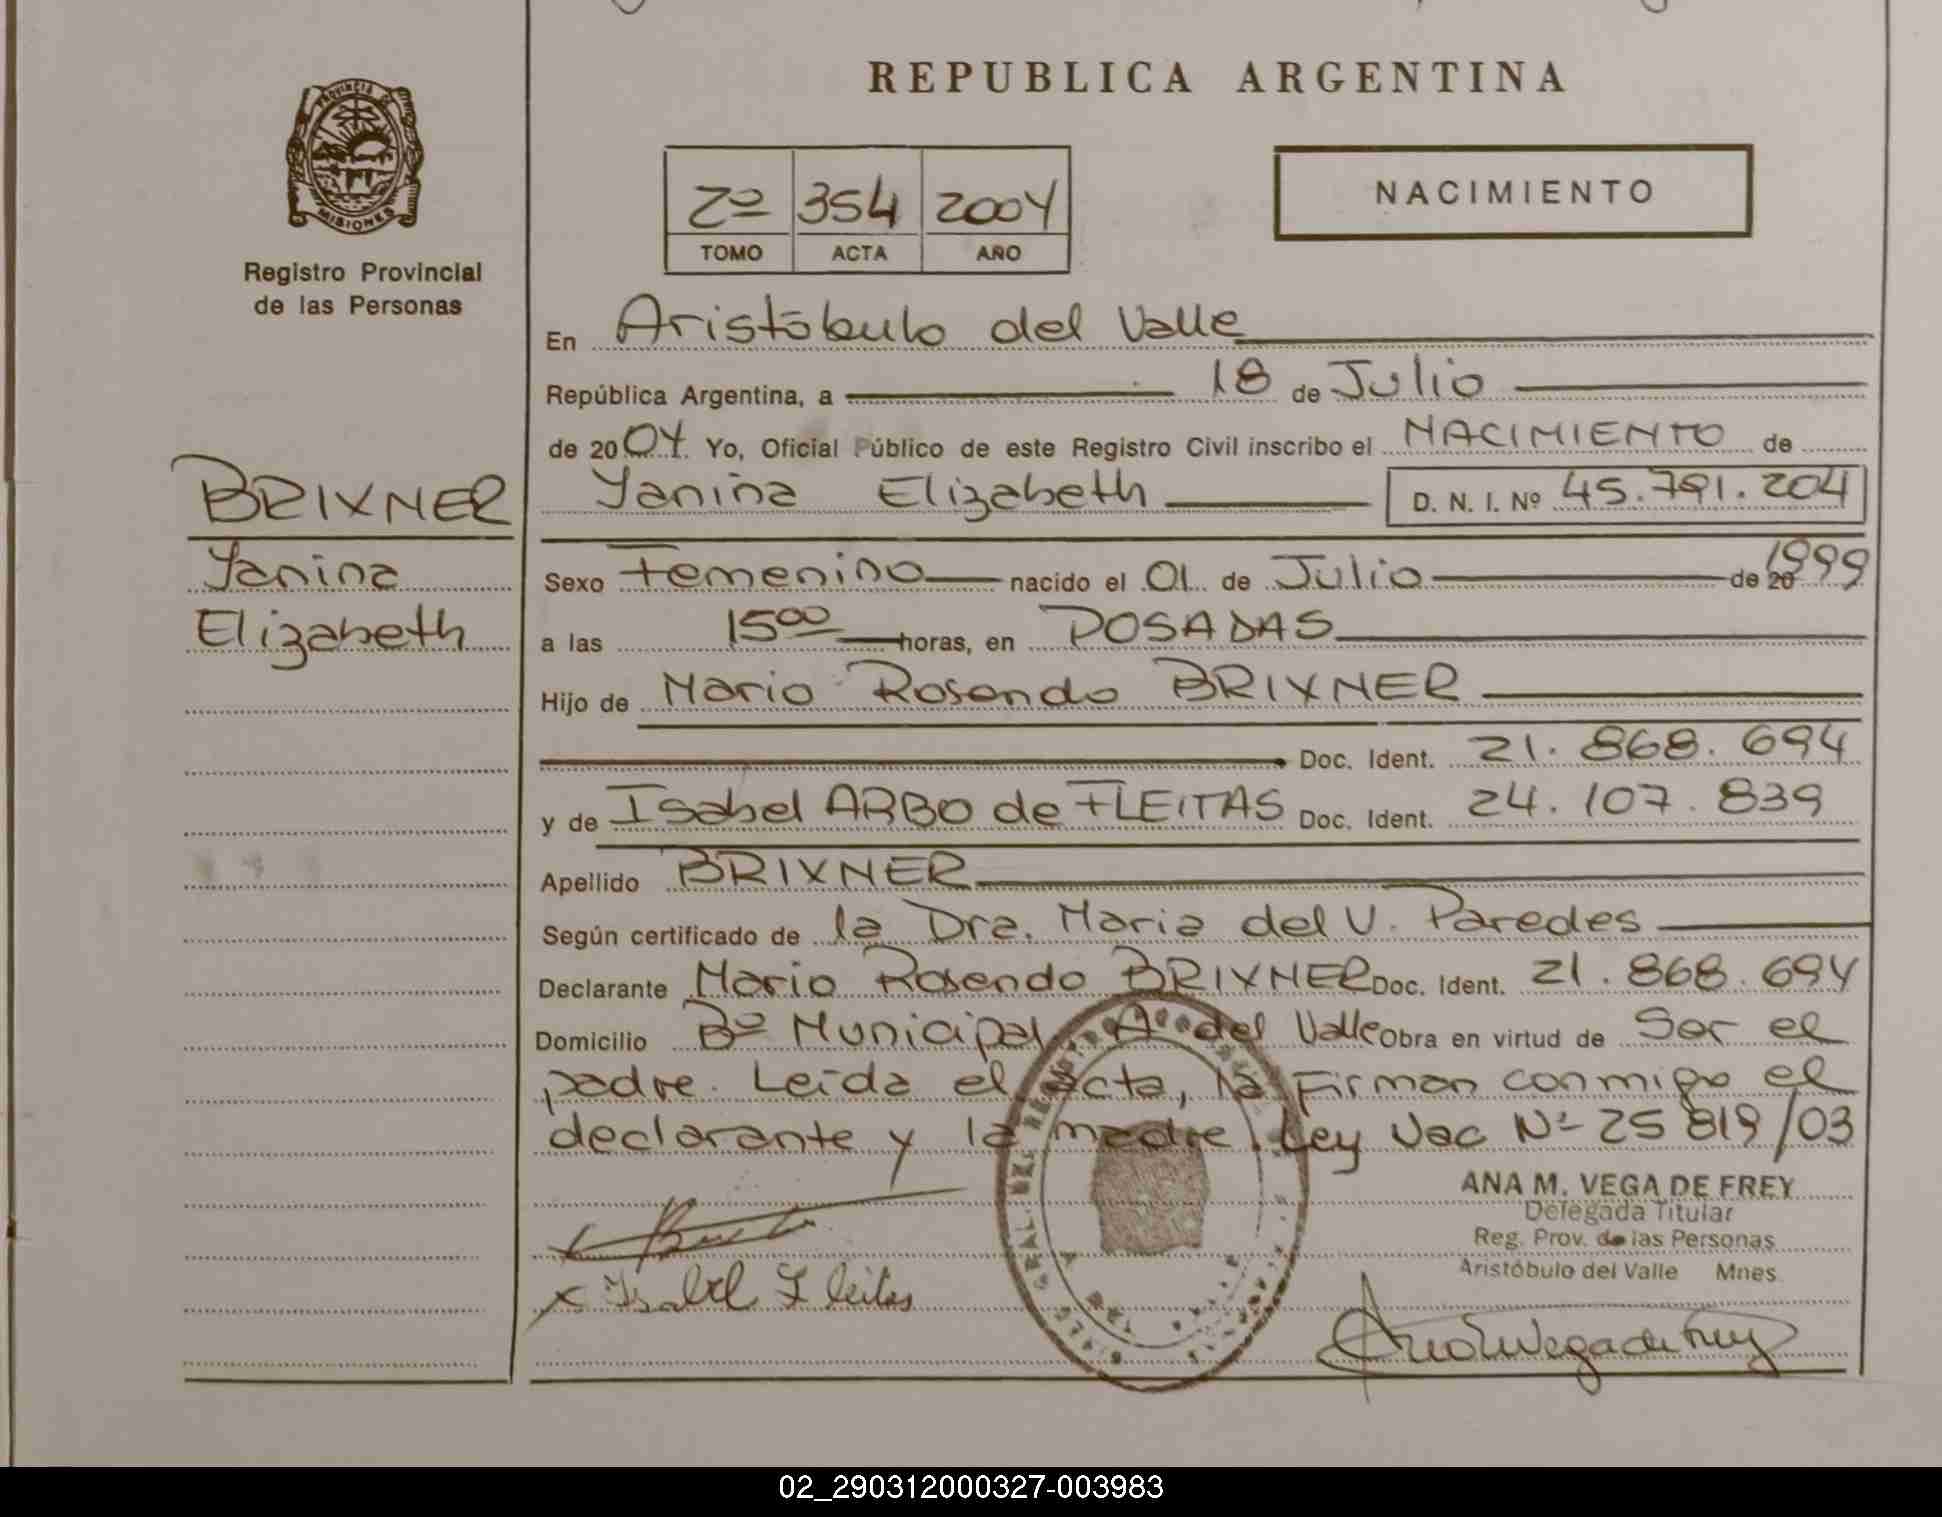 REPUBLICA ARGENTINA
PROVINCIA DE
MISIONES
Registro Provincial
de las Personas
2º 354 2004
TOMO ACTA AÑO
NACIMIENTO
BRIXNER
Yanina
Elizabeth
En Aristóbulo del Valle
República Argentina, a 18 de Julio
de 2004 Yo, Oficial Público de este Registro Civil inscribo el NACIMIENTO de
Yanina Elizabeth D. N. I. Nº 45.791.204
Sexo Femenino nacido el 01 de Julio de 20 1999
a las 15⁰⁰ horas, en POSADAS
Hijo de Mario Rosendo BRIXNER
Doc. Ident. 21.868.694
y de Isabel ARBO de FLEITAS Doc. Ident. 24.107.839
Apellido BRIXNER
Según certificado de la Dra. Maria del V. Paredes
Declarante Mario Rosendo BRIXNER Doc. Ident. 21.868.694
Domicilio Bº Municipal Aº del Valle Obra en virtud de Ser el
padre. Leida el acta, la Firman conmigo el
declarante y la madre. Ley Nac Nº 25 819/03
ANA M. VEGA DE FREY
Delegada Titular
Reg. Prov. de las Personas
Aristóbulo del Valle Mnes.
x Isabel Fleitas
02_290312000327-003983